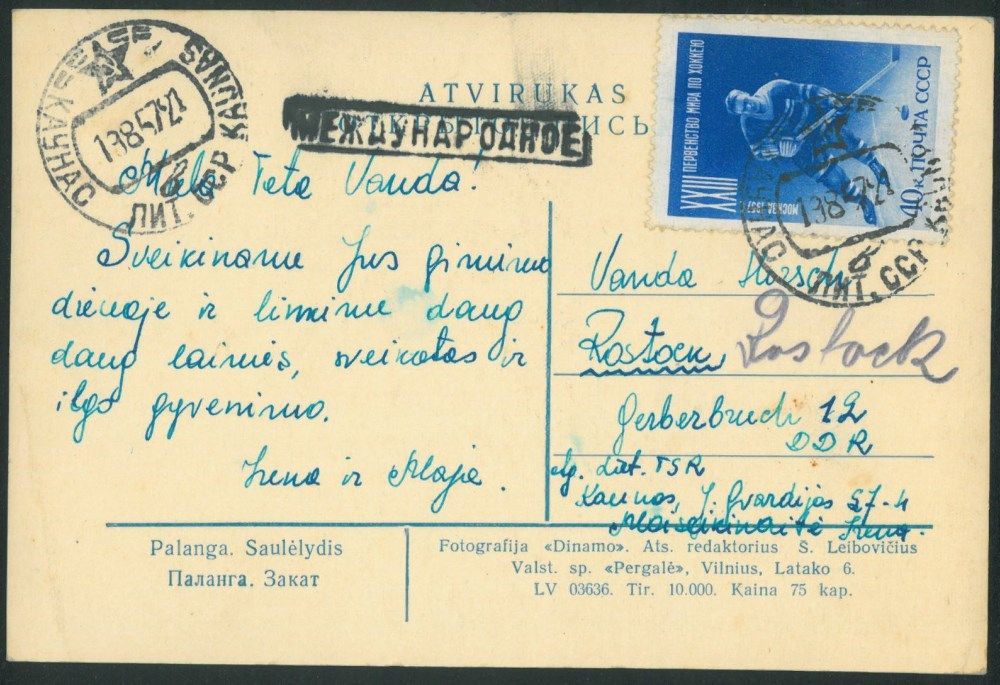 КАУНАС ЛИТ. ССР KAUNAS
13857-21
б
ATVIRUKAS
МЕЖДУНАРОДНОЕ
XXIII ПЕРВЕНСТВО МИРА ПО ХОККЕЮ
МОСКВА-1957
40 К. ПОЧТА СССР
13857-21
б
ЛИТ. ССР
Miela Teta Vanda!
Sveikiname Jus gimimo
dienoje ir linkime daug
daug laimės, sveikatos ir
ilgo gyvenimo.
Irena ir Maja.
Vanda Hirsch
Rostock, Rostock
Gerberbruch 12
DDR
Kaunas, J. Gvardijos 57-4
Irena.
Palanga. Saulėlydis
Паланга. Закат
Fotografija «Dinamo». Ats. redaktorius S. Leibovičius
Valst. sp. «Pergalė», Vilnius, Latako 6.
LV 03636. Tir. 10.000. Kaina 75 kap.